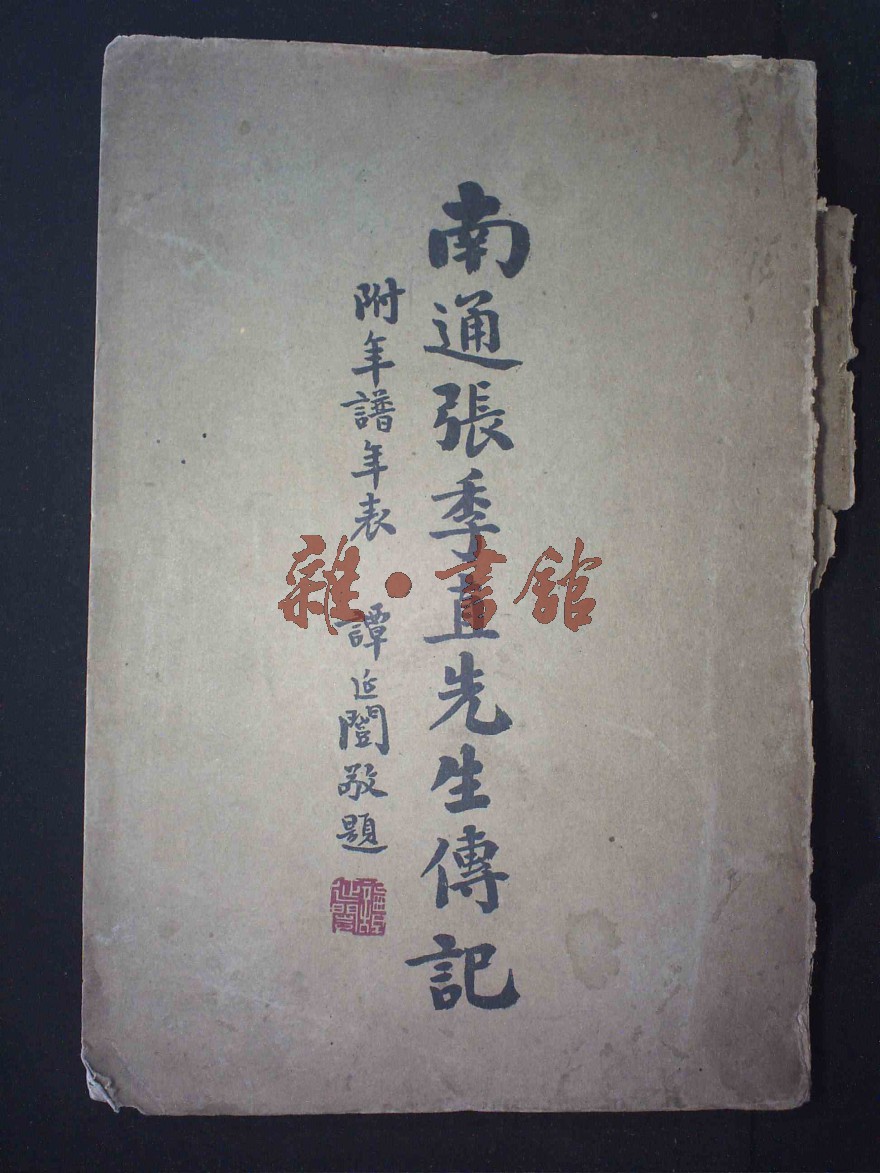 南通張季直先生傳記
附年譜年表 譚延闓敬題
雜·書館